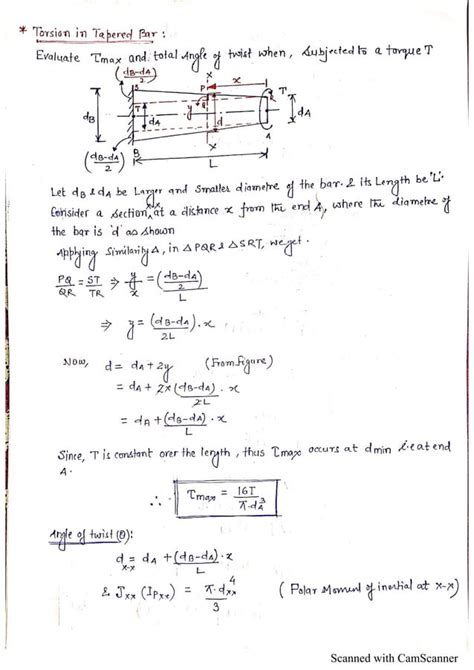 * Torsion in Tapered Bar :
Evaluate τmax and total Angle of twist when, subjected to a torque T
(dB-dA)/2
x P x T
S R
dB T y Q dA
dA d
B x A
(dB-dA)/2 L
Let dB & dA be Larger and Smaller diametre of the bar. & its Length be 'L'.
Consider a section x-x at a distance x from the end A, where the diametre of
the bar is 'd' as shown
Applying Similarity Δ, in Δ PQR & Δ SRT, we get.
PQ/QR = ST/TR ⇒ y/x = ((dB-dA)/2)/L
⇒ y = (dB-dA)/2L . x
Now, d = dA + 2y (From figure)
= dA + 2x(dB-dA)/2L . x
= dA + (dB-dA)/L . x
Since, T is constant over the length, thus τmax occurs at dmin i.e at end
A.
∴ τmax = 16T/π.dA³
Angle of twist (θ):
dx-x = dA + (dB-dA)/L . x
& Jxx (IPxx) = π.dxx⁴/3 (Polar Moment of inertial at x-x)
Scanned with CamScanner